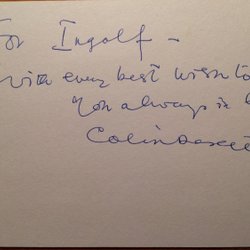 For Ingolf -
with every best wish to
you always in
Colin